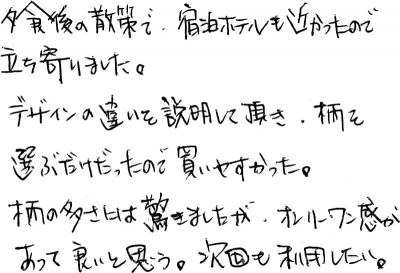 夕食後の散策で、宿泊ホテルも近かったので
立ち寄りました。
デザインの違いを説明して頂き、柄を
選ぶだけだったので買いやすかった。
柄の多さには驚きましたが、オンリーワン感が
あって良いと思う。次回も利用したい。